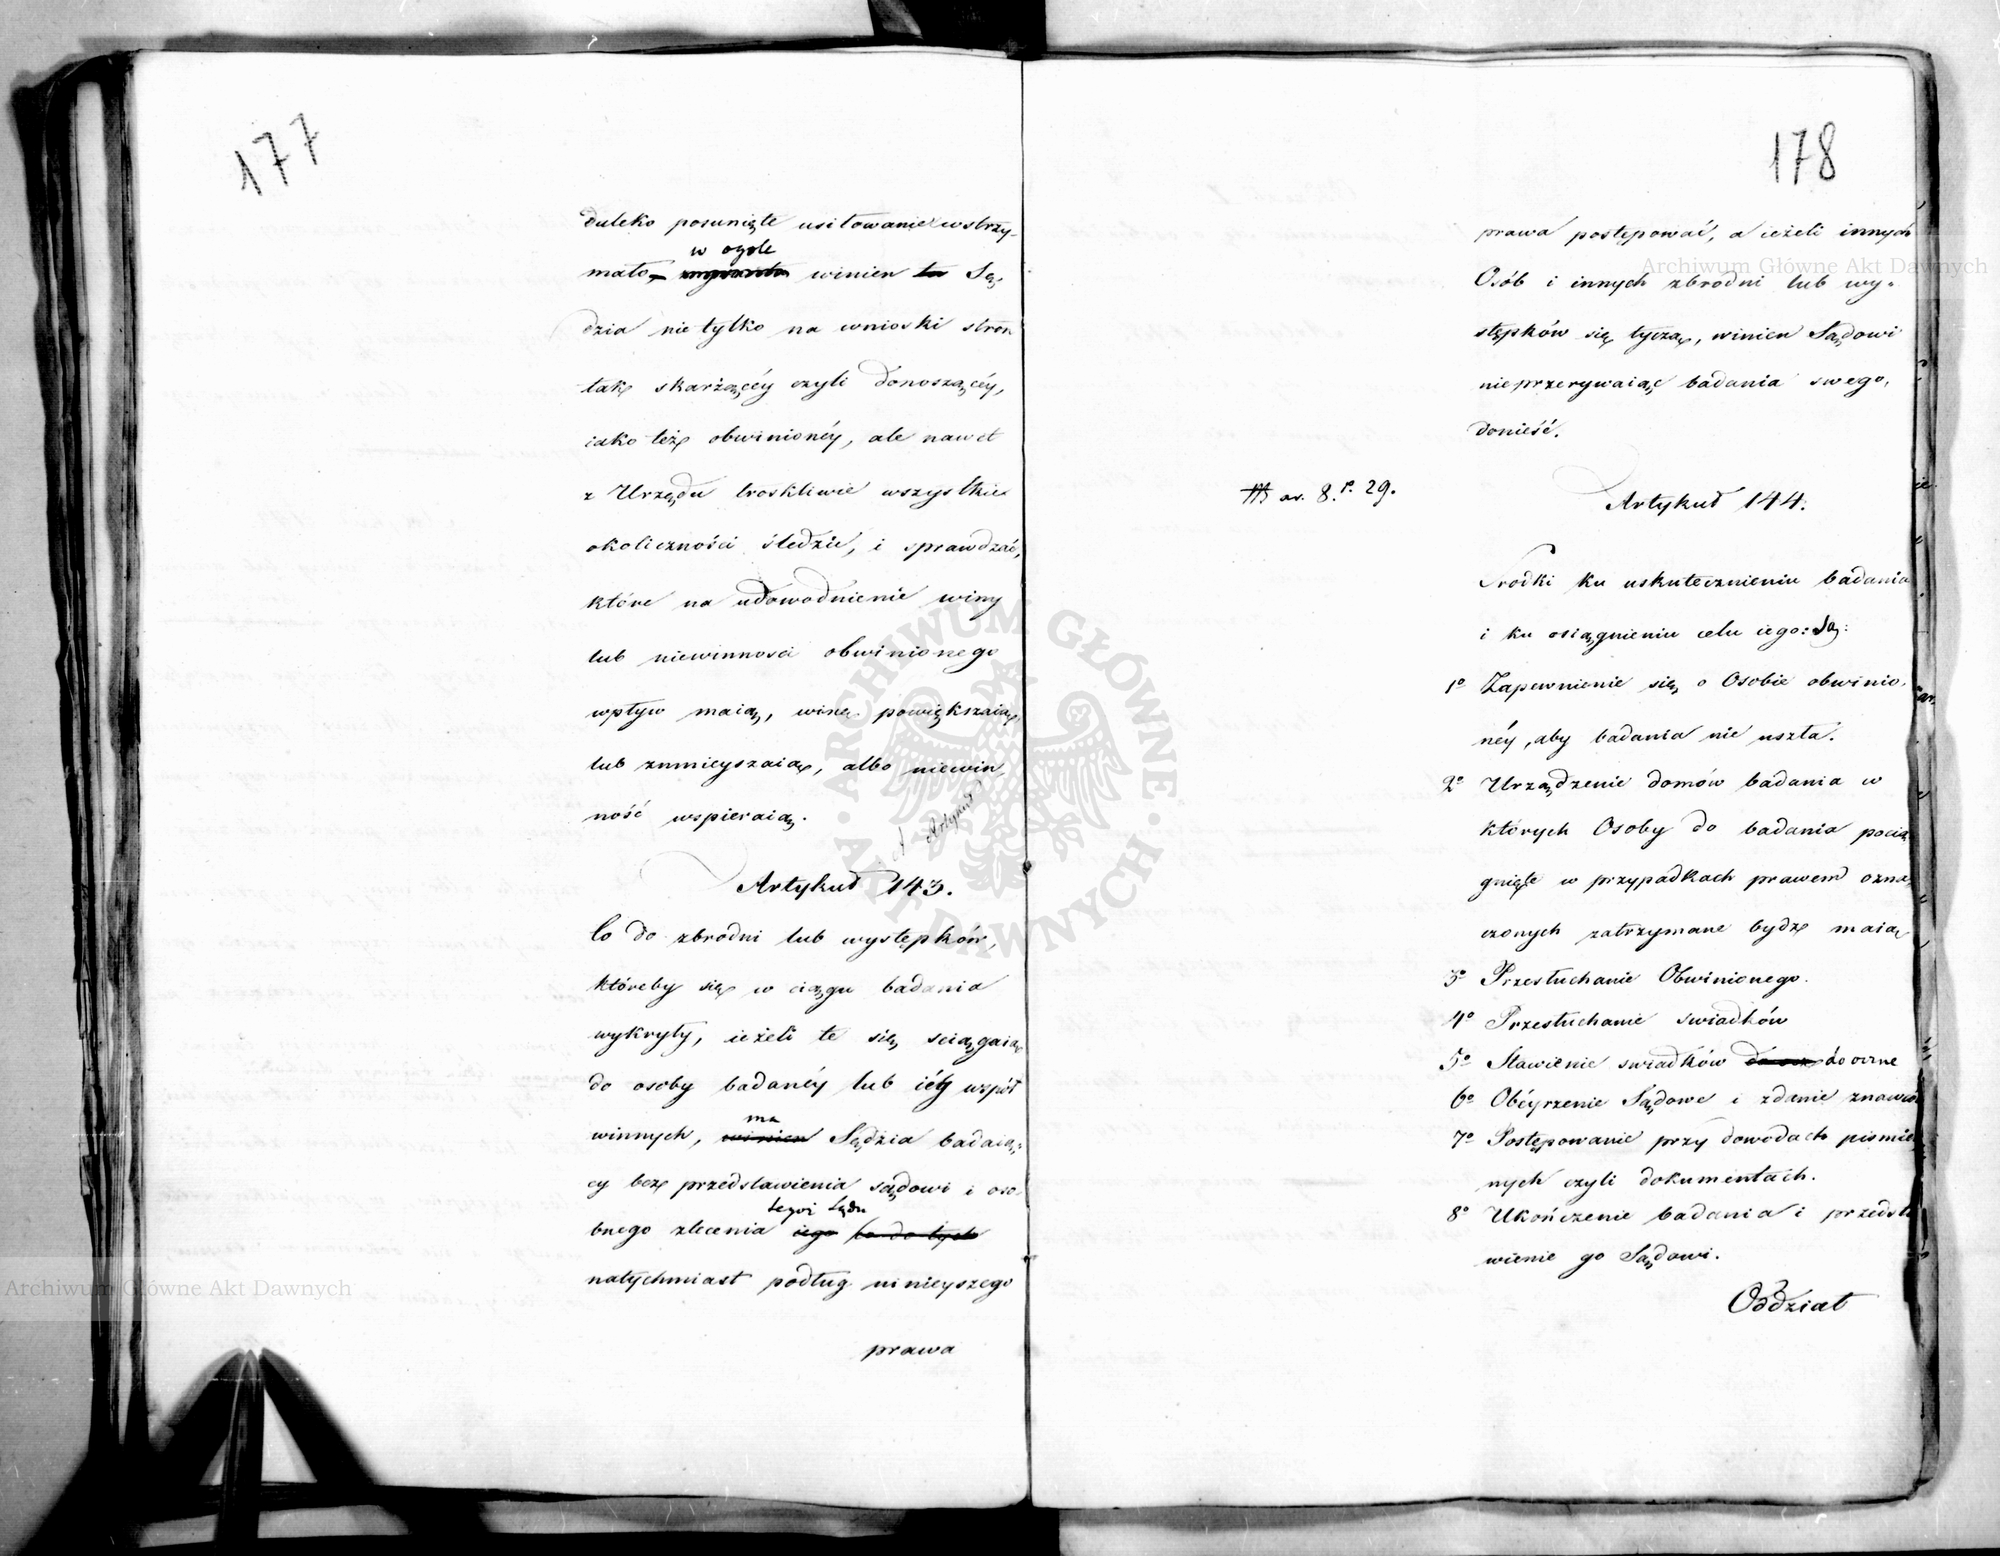 177
daleko posunięte usiłowanie wstrzy-
w ogóle
mało, winien to Sę-
dzia nie tylko na wnioski stron
tak skarżącéy czyli donoszącéy,
iako też obwinionéy, ale nawet
z Urzędu troskliwie wszystkie
okoliczności śledzić, i sprawdzać,
które na udowodnienie winy
lub niewinnosci obwinionego
wpływ maią, winę powiększaią,
lub zmnieyszaią, albo niewin,
ność wspieraią.
Artykuł 143.
Co do zbrodni lub występków,
któreby się w ciągu badania
wykryły, ieżeli te się sciągaią
do osoby badanéy lub iéy wspól
ma
winnych, winien Sędzia badaią-
cy bez przedstawienia sądowi i oso-
tegoż Sądu
bnego zlecenia iego co do tych
natychmiast podług ninieyszego
prawa
178
prawa postępować, a ieżeli innych
Osób i innych zbrodni lub wy-
stępków się tyczą, winien Sądowi
nieprzerywaiąc badania swego,
donieść.
ar. 8. P. 29.
Artykuł 144.
Srodki ku uskutecznieniu badania
i ku osiągnieniu celu iego: Są:
1o Zapewnienie się o Osobie obwinio,
néy, aby badania nie uszła.
2o Urządzenie domów badania w
których Osoby do badania pocią
gnięte w przypadkach prawem ozna-
czonych zatrzymane bydź maią
3o Przesłuchanie Obwinionego.
4o Przesłuchanie swiadków
5o Stawienie swiadków do oczne
6o Obéyrzenie Sądowe i zdanie znawców
7o Postępowanie przy dowodach pismie
nych czyli dokumentach.
8o Ukończenie badania i przedsta
wienie go Sądowi.
Oddział
Archiwum Główne Akt Dawnych
Archiwum Główne Akt Dawnych
ARCHIWUM GŁÓWNE AKT DAWNYCH